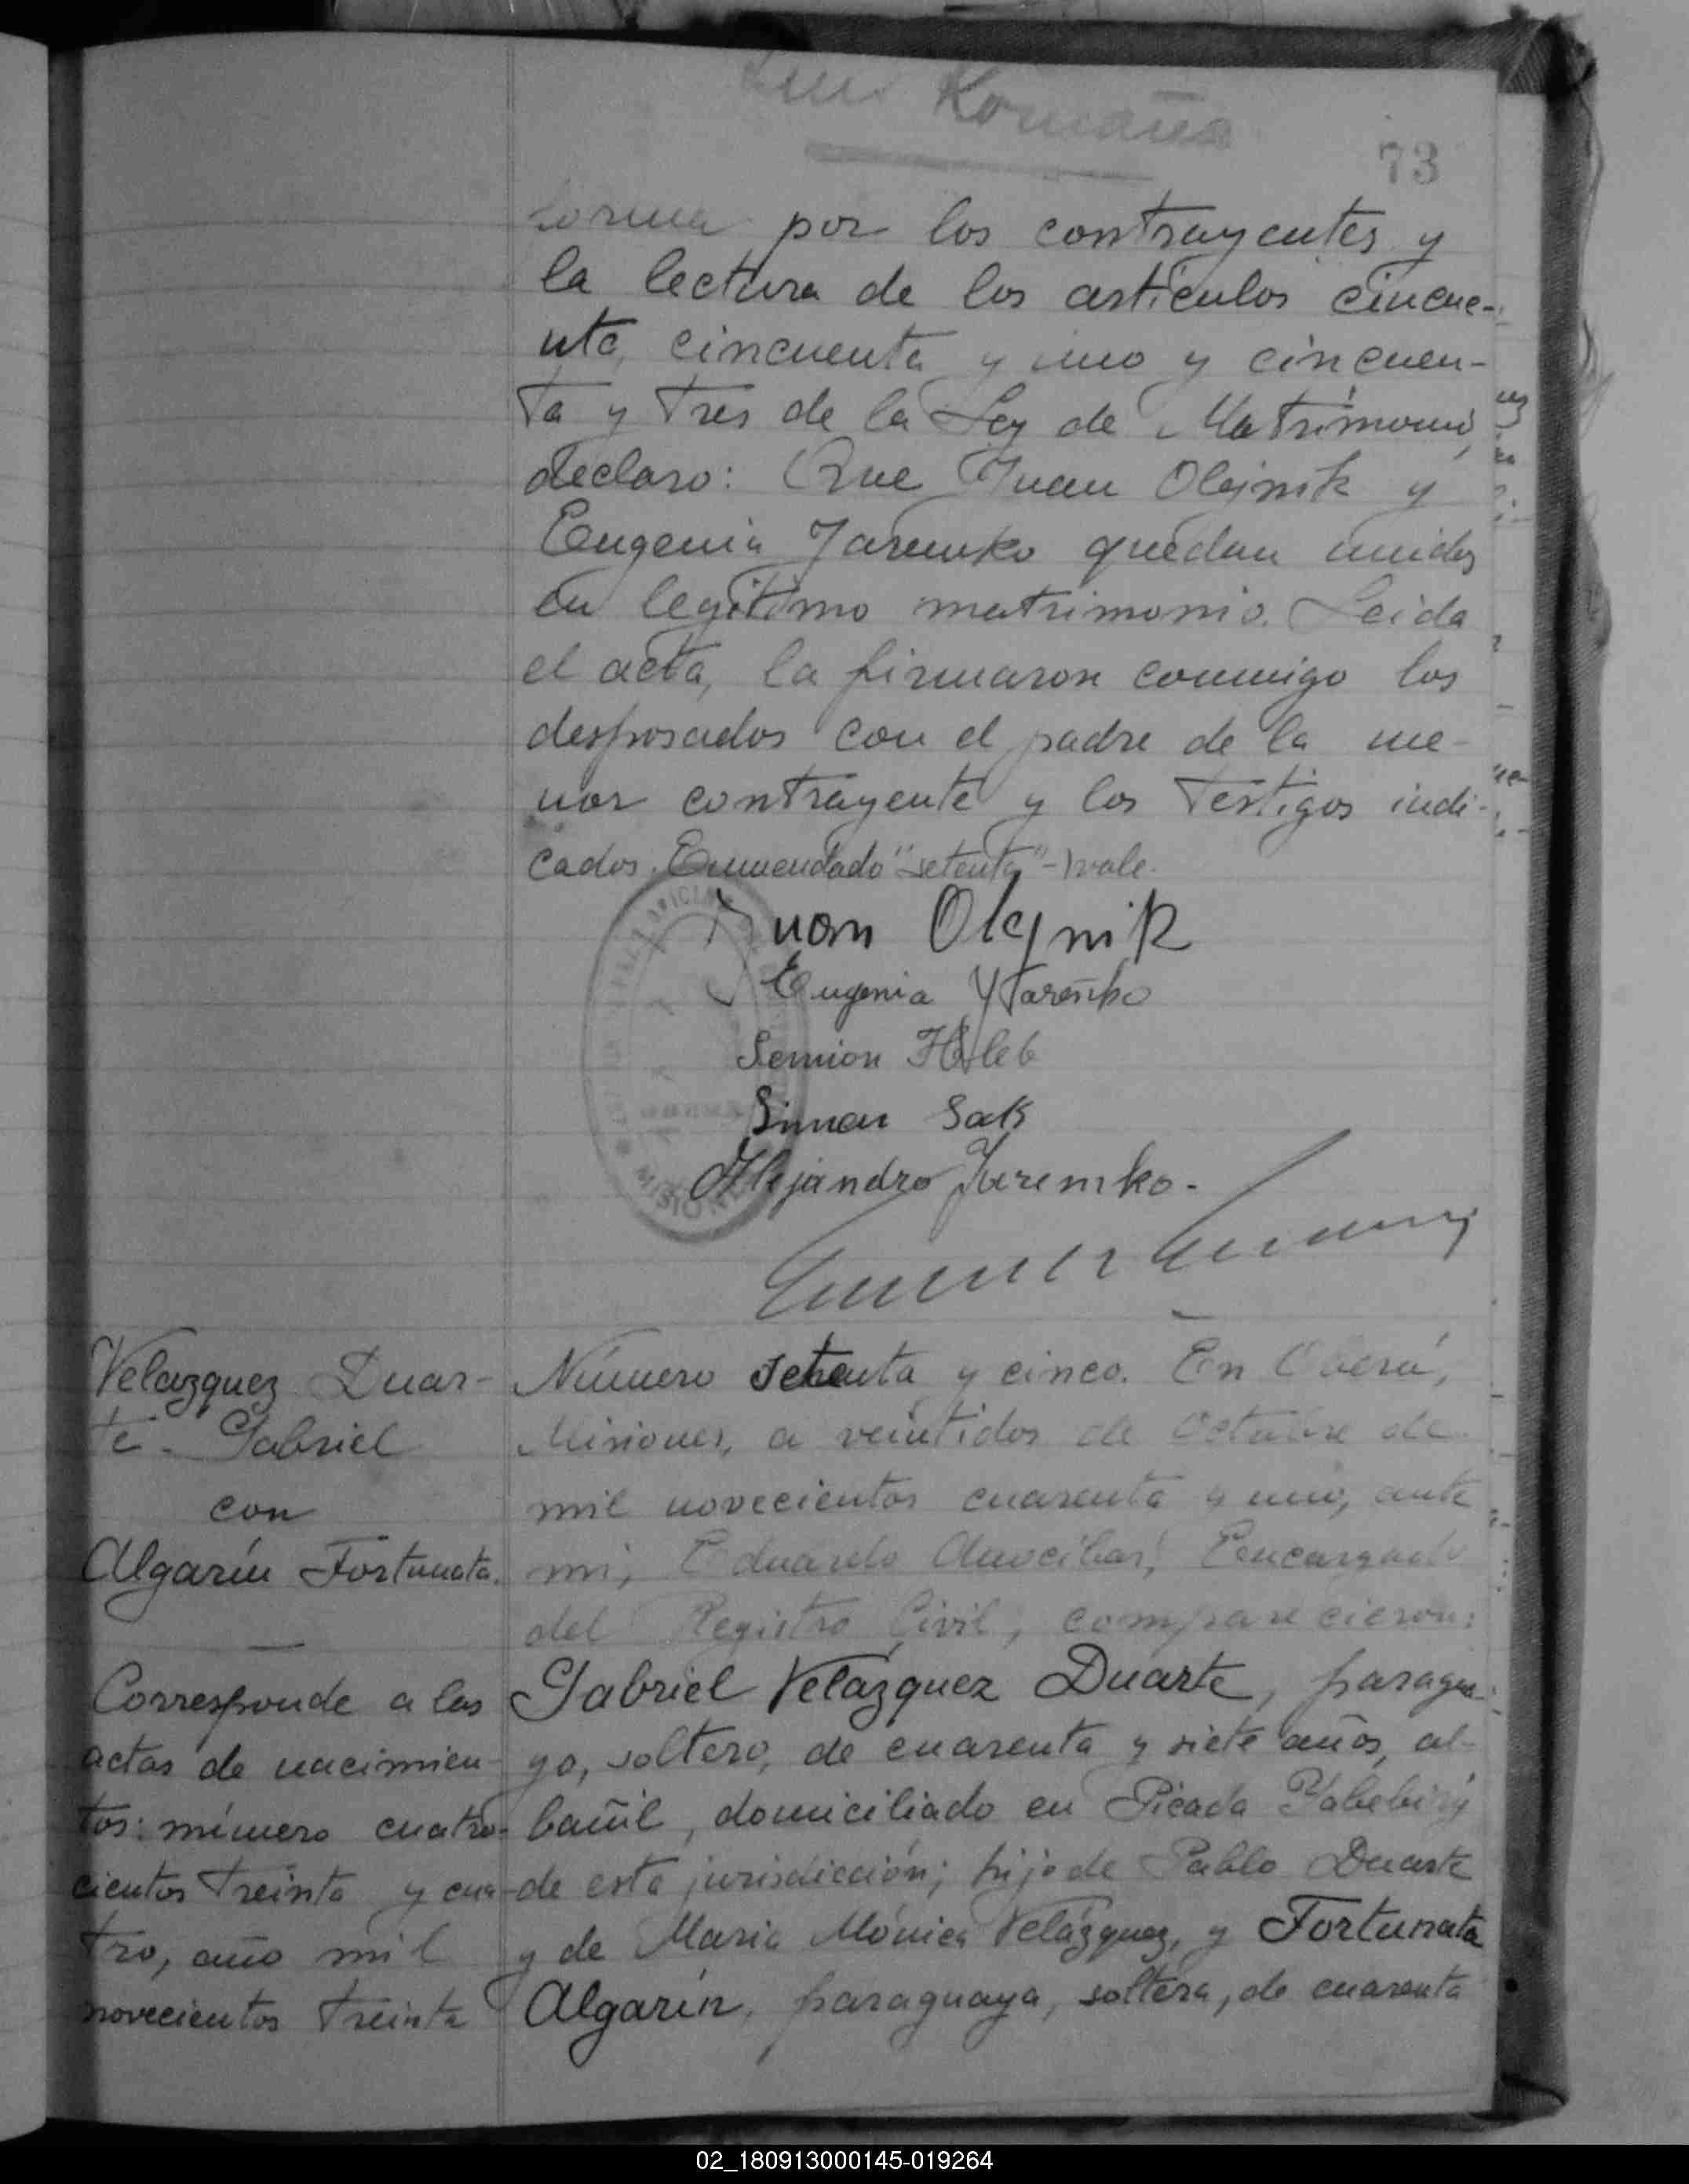 73
forma por los contrayentes y
la lectura de los artículos cincue-
nta, cincuenta y uno y cincuen-
ta y tres de la Ley de Matrimonio,
declaro: Que Juan Olejnik y
Eugenia Jaremko quedan unidos
en legítimo matrimonio. Leida
el acta, la firmaron conmigo los
desposados con el padre de la me-
nor contrayente y los testigos indi-
cados. Enmendado "setenta" - vale.
Juan Olejnik
Eugenia
Semion Hleb
Simon Saks
Alejandro Juremko.-
MISIONES
Velazquez Duar-
te. Gabriel
con
Algarín Fortunata.
Corresponde a las
actas de nacimien-
tos: número cuatro-
cientos treinta y cua-
tro, año mil
novecientos treinta
Número setenta y cinco. En Oberá,
Misiones, a veintidos de Octubre de
mil novecientos cuarenta y uno, ante
mi, Eduardo Encargado
del Registro Civil, comparecieron:
Gabriel Velázquez Duarte, paragua-
yo, soltero, de cuarenta y siete años, al-
bañil, domiciliado en Picada Yabebiry
de esta jurisdicción; hijo de Pablo Duarte
y de Maria Mónica Velázquez, y Fortunata
Algarín, paraguaya, soltera, de cuarenta
02_180913000145-019264